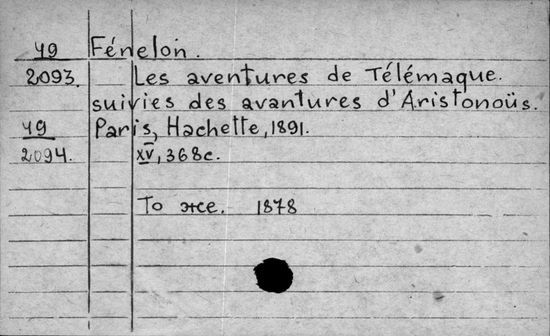 49 Fénelon.
2093. Les aventures de Télémaque.
suivies des avantures d'Aristonoüs.
49 Paris, Hachette, 1891.
2094. XV, 368с.
То же. 1878